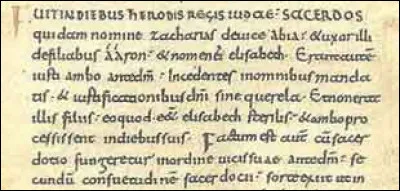 FUIT IN DIEBUS hERODIS REGIS IUDAE· SACERDOS
quidam nomine zacharias deuice abia· & uxor illi
defiliabus ááron· & nomen ei elisabeth· Erant autē
iusti ambo ante dm̄· Incedentes inomnibus manda
tis· & iustificationibus dn̄i sine querela· Et non erat
illis filius· eo quod e& elisabeth sterilis· & ambo pro
cessissent indiebus suis· Factum est aut̄ cū sacer
dotio fungeretur inordine uicis suae ante dm̄· se
cundū consuetudinē sacerdotii· sorte exiit ut in